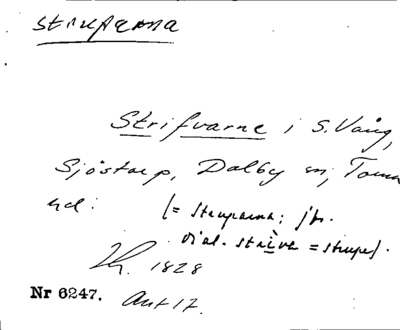 struparna
Strifvarne i S. Vång,
Sjöstorp, Dalby sn, Torna
hd:
(= struparna; jfr.
dial. strive = strupe).
1828
Nr 6247. Ant 17.